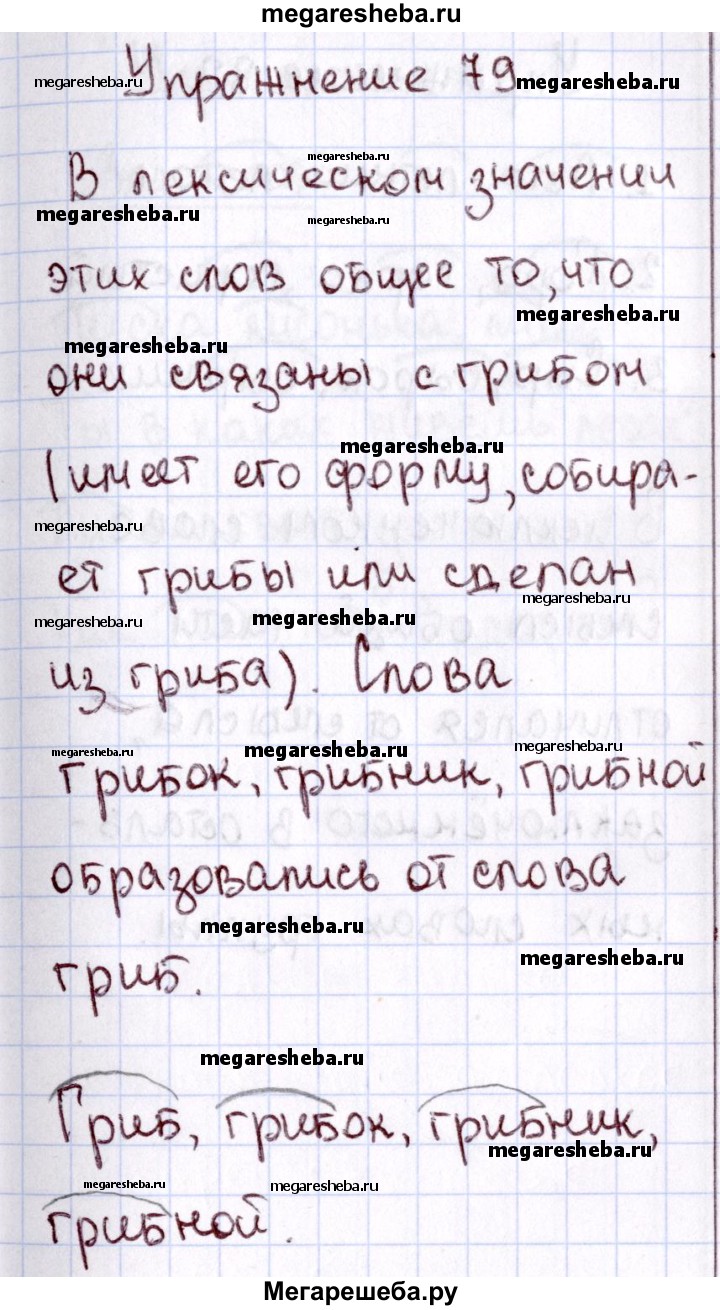 megaresheba.ru
Упражнение 79
megaresheba.ru
megaresheba.ru
megaresheba.ru
В лексическом значении
megaresheba.ru
megaresheba.ru
этих слов общее то, что
megaresheba.ru
megaresheba.ru
они связаны с грибом
megaresheba.ru
(имеет его форму, собира-
megaresheba.ru
ет грибы или сделан
megaresheba.ru
megaresheba.ru
megaresheba.ru
из гриба). Слова
megaresheba.ru
megaresheba.ru
megaresheba.ru
грибок, грибник, грибной
образовались от слова
megaresheba.ru
megaresheba.ru
гриб.
megaresheba.ru
Гриб, грибок, грибник,
megaresheba.ru
megaresheba.ru
megaresheba.ru
грибной.
Мегарешеба.ру